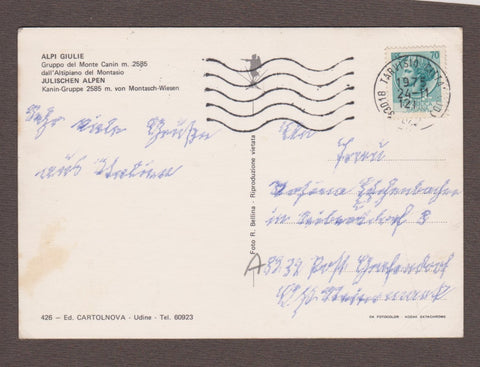 ALPI GIULIE
Gruppo del Monte Canin m. 2585
dall'Altipiano del Montasio
JULISCHEN ALPEN
Kanin-Gruppe 2585 m. von Montasch-Wiesen
70
33018 TARVISIO
1973
24-
12
Sehr viele Grüße
aus Italien
An
Frau
in
3
A 8232 Post Grafendorf
Steiermark
Foto R. Bellina - Riproduzione vietata
426 – Ed. CARTOLNOVA - Udine - Tel. 60923
DA FOTOCOLOR - KODAK EKTACHROME